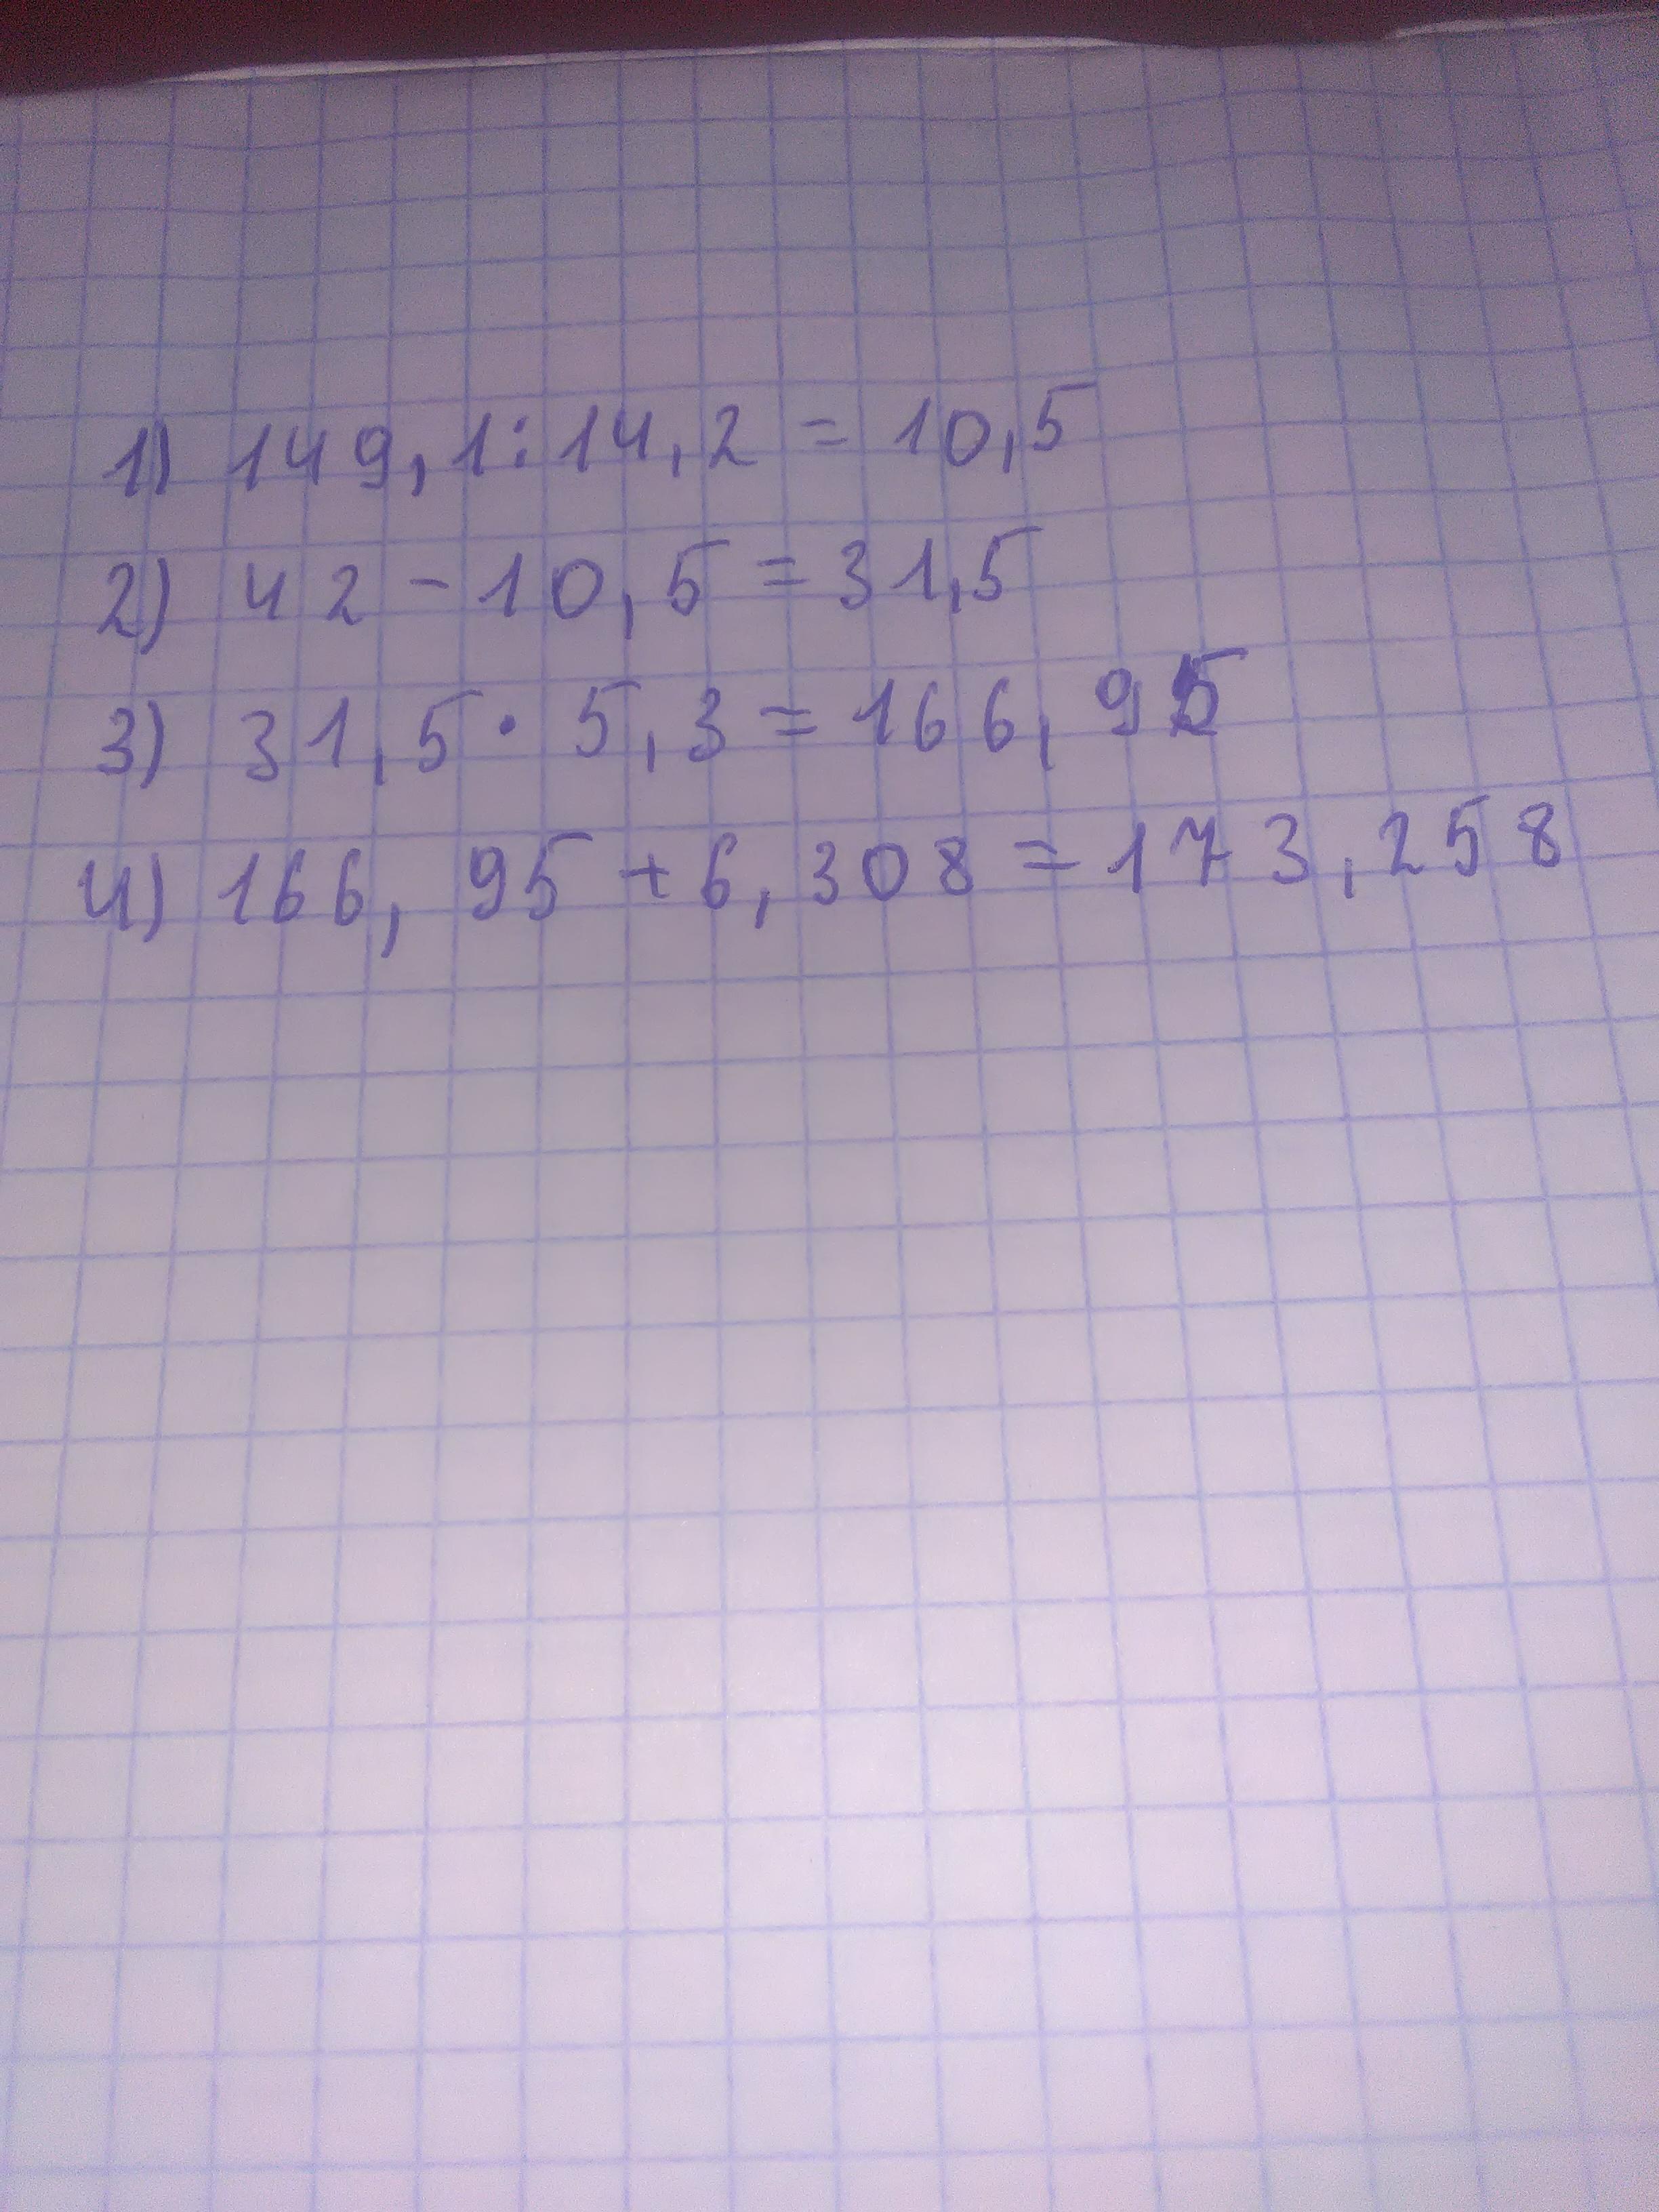 1) 149,1:14,2 = 10,5
2) 42 - 10,5 = 31,5
3) 31,5 · 5,3 = 166,95
4) 166,95 + 6,308 = 173,258